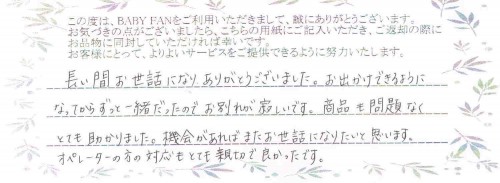 この度は、BABY FANをご利用いただきまして、誠にありがとうございます。
お気づきの点がございましたら、こちらの用紙にご記入いただき、ご返却の際に
お品物に同封していただければ幸いです。
お客様にとって、よりよいサービスをご提供できるように努力いたします。
長い間お世話になりありがとうございました。お出かけできるように
なってからずっと一緒だったのでお別れが寂しいです。商品も問題なく
とても助かりました。機会があればまたお世話になりたいと思います。
オペレーターの方の対応もとても親切で良かったです。